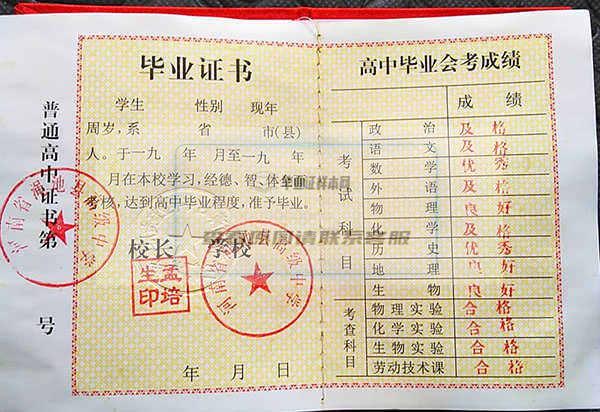 普通高中证书第 号
毕业证书
学生 性别 现年
周岁,系 省 市(县)
人。于一九 年 月至一九 年
月在本校学习,经德、智、体全面
考核,达到高中毕业程度,准予毕业。
校长 学校
孟培
生印
年 月 日
高中毕业会考成绩
成绩
考试科目
政治 及格
语文 及格
数学 优秀
外语 及格
物理 良好
化学 及格
历史 优秀
地理 良好
生物 良好
考查科目
物理实验 合格
化学实验 合格
生物实验 合格
劳动技术课 合格